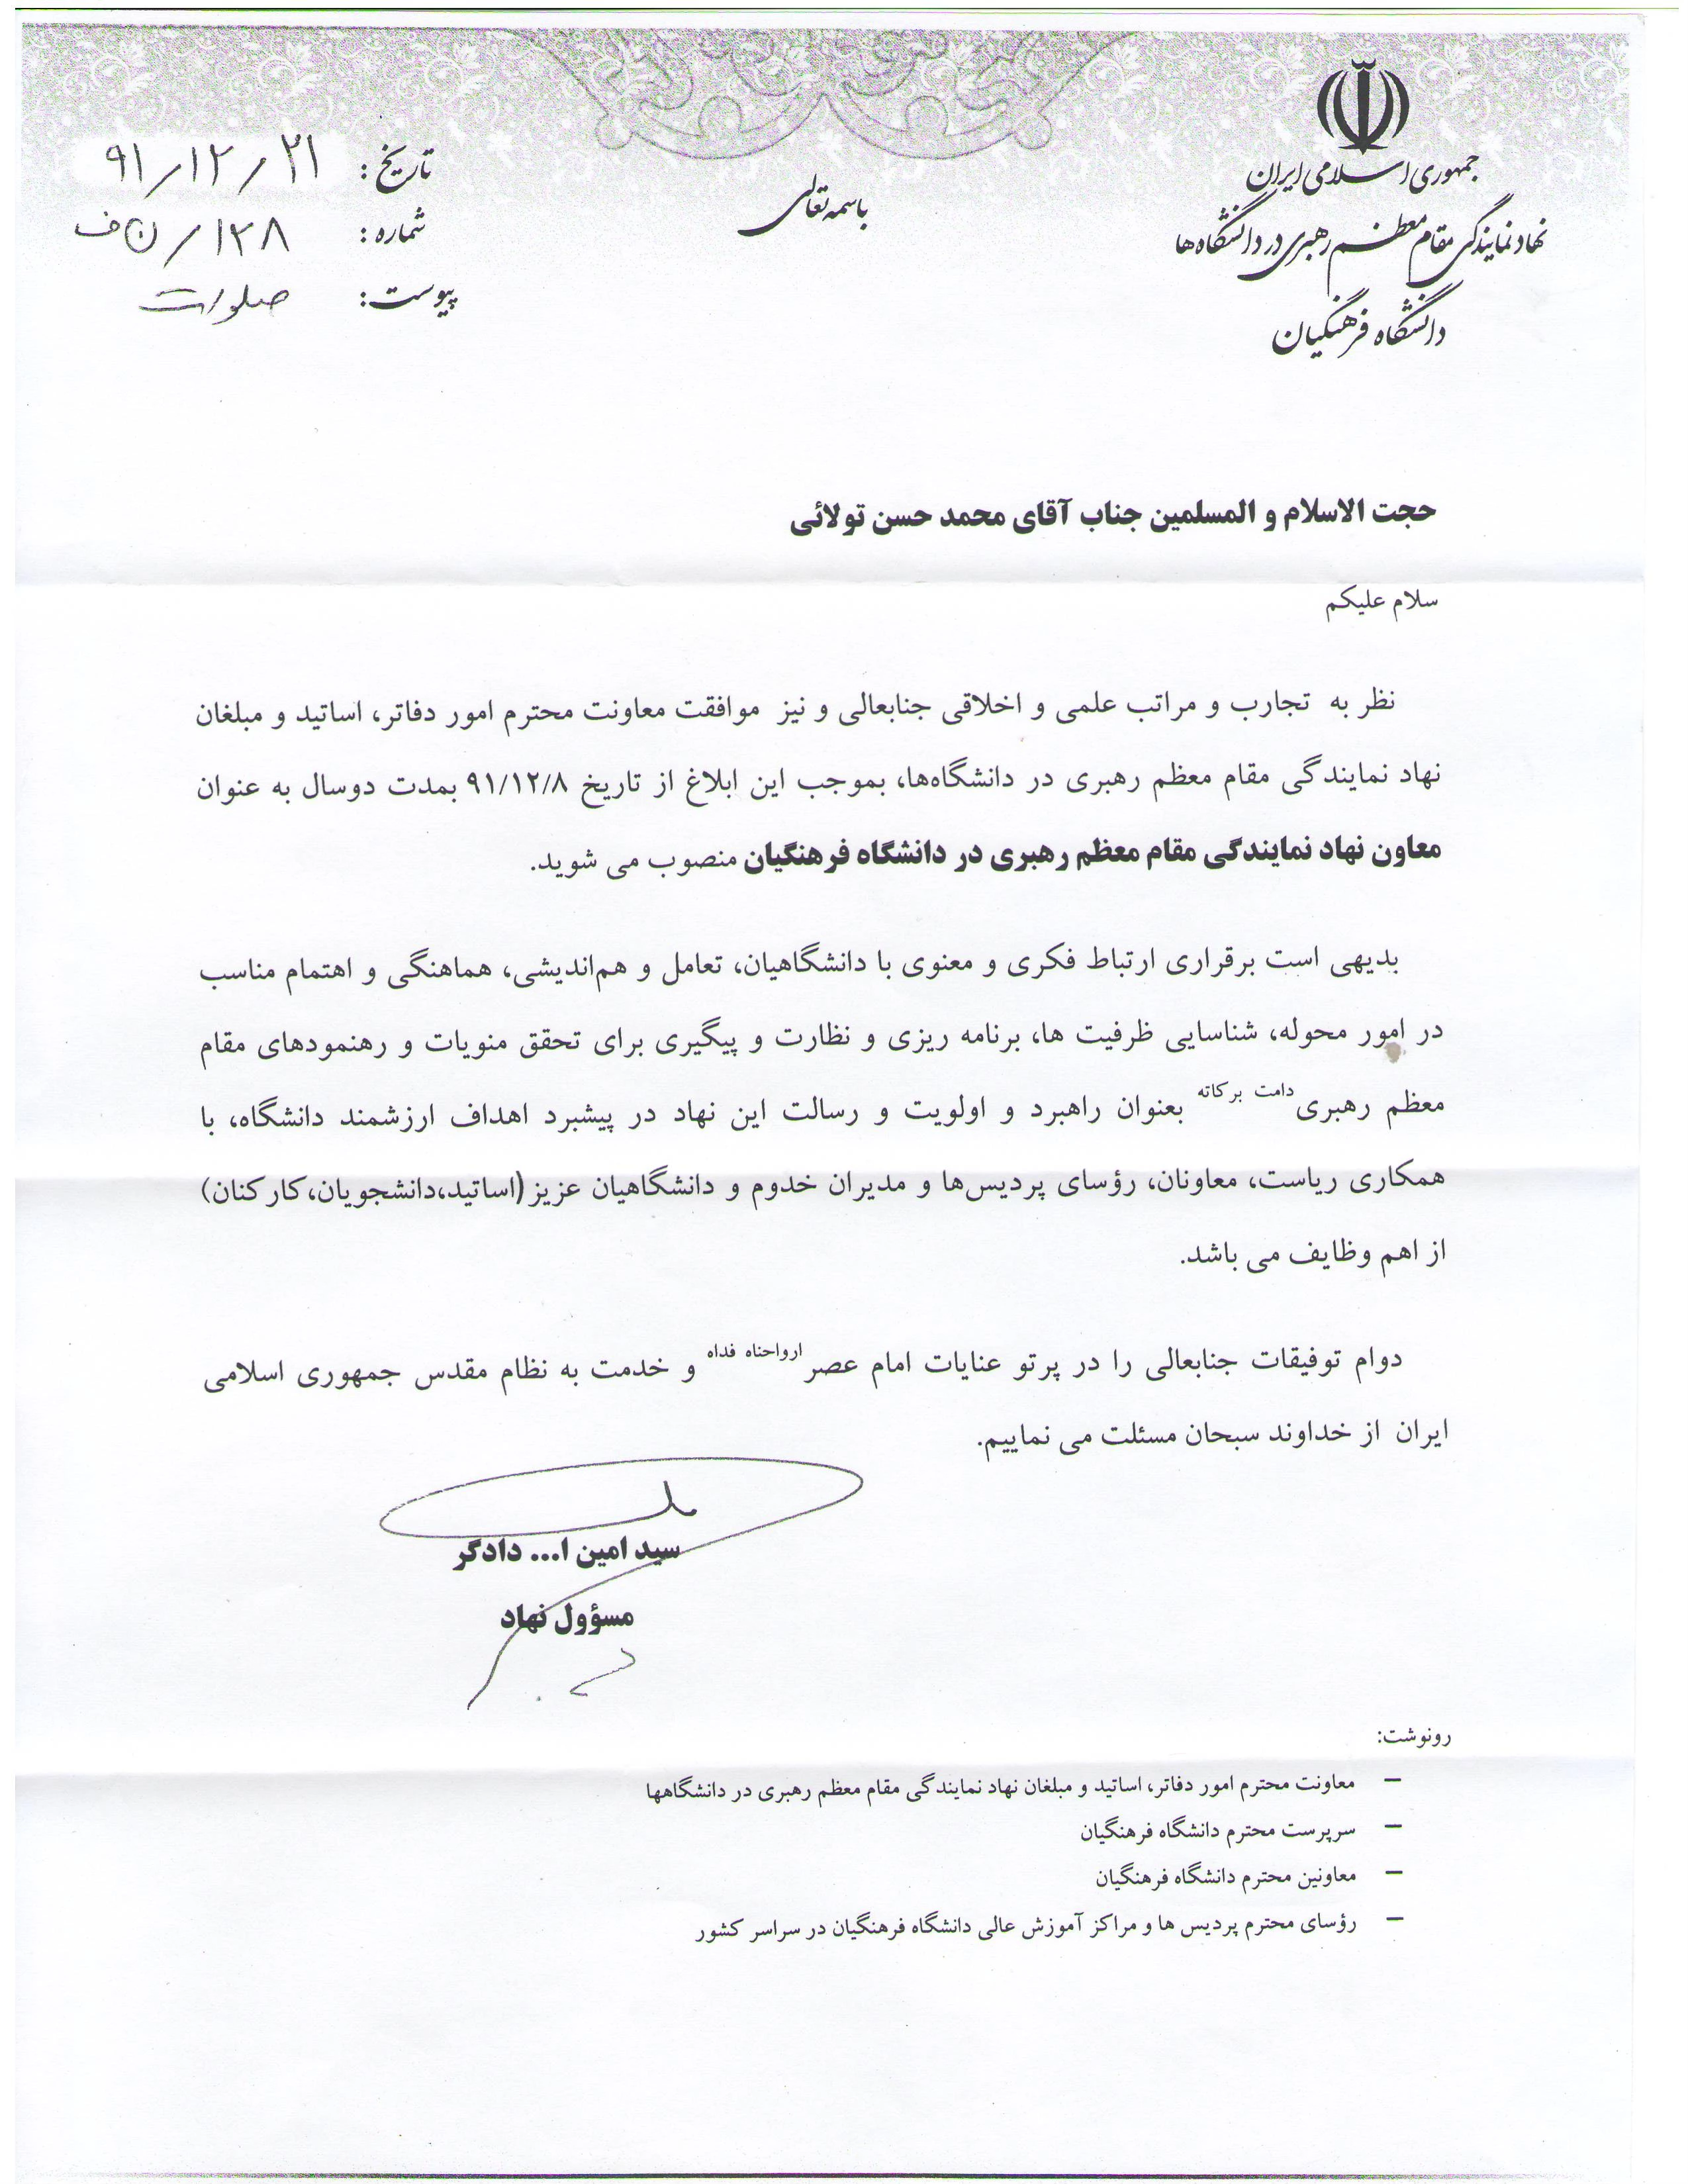 جمهوری اسلامی ایران
نهاد نمایندگی مقام معظم رهبری در دانشگاه ها
دانشگاه فرهنگیان
باسمه تعالی
تاریخ : ۹۱/۱۲/۲۱
شماره : ۱۲۸/ن ف
پیوست:
حجت الاسلام و المسلمین جناب آقای محمد حسن تولائی
سلام علیکم
نظر به تجارب و مراتب علمی و اخلاقی جنابعالی و نیز موافقت معاونت محترم امور دفاتر، اساتید و مبلغان
نهاد نمایندگی مقام معظم رهبری در دانشگاه‌ها، بموجب این ابلاغ از تاریخ ۹۱/۱۲/۸ بمدت دوسال به عنوان
معاون نهاد نمایندگی مقام معظم رهبری در دانشگاه فرهنگیان منصوب می شوید.
بدیهی است برقراری ارتباط فکری و معنوی با دانشگاهیان، تعامل و هم‌اندیشی، هماهنگی و اهتمام مناسب
در امور محوله، شناسایی ظرفیت ها، برنامه ریزی و نظارت و پیگیری برای تحقق منویات و رهنمودهای مقام
معظم رهبری دامت برکاته بعنوان راهبرد و اولویت و رسالت این نهاد در پیشبرد اهداف ارزشمند دانشگاه، با
همکاری ریاست، معاونان، رؤسای پردیس‌ها و مدیران خدوم و دانشگاهیان عزیز (اساتید،دانشجویان،کارکنان)
از اهم وظایف می باشد.
دوام توفیقات جنابعالی را در پرتو عنایات امام عصر ارواحناه فداه و خدمت به نظام مقدس جمهوری اسلامی
ایران از خداوند سبحان مسئلت می نماییم.
سید امین ا... دادگر
مسؤول نهاد
رونوشت:
– معاونت محترم امور دفاتر، اساتید و مبلغان نهاد نمایندگی مقام معظم رهبری در دانشگاهها
– سرپرست محترم دانشگاه فرهنگیان
– معاونین محترم دانشگاه فرهنگیان
– رؤسای محترم پردیس ها و مراکز آموزش عالی دانشگاه فرهنگیان در سراسر کشور